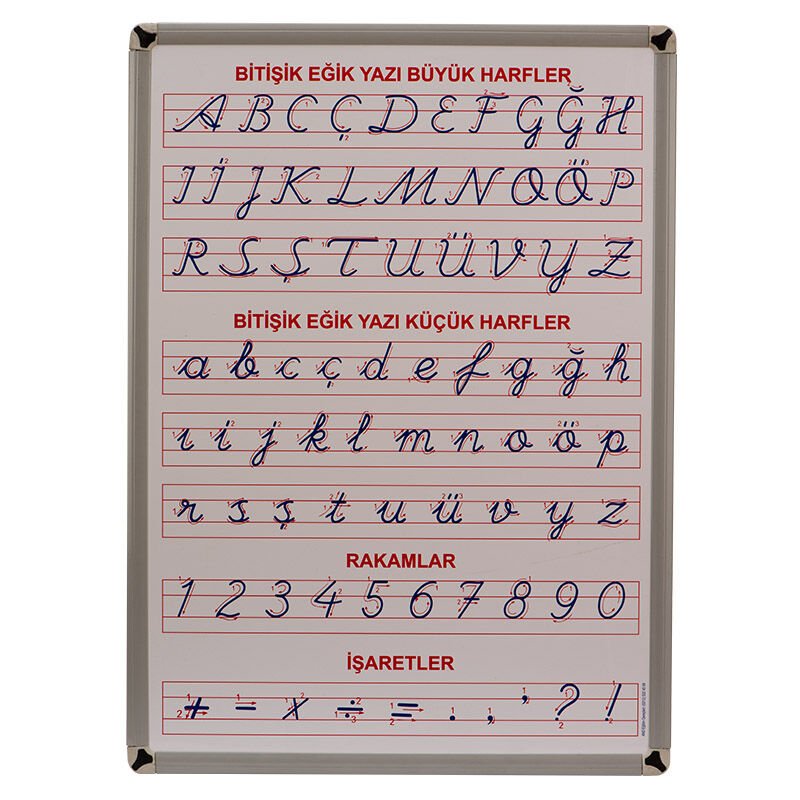 BİTİŞİK EĞİK YAZI BÜYÜK HARFLER
A B C Ç D E F G Ğ H
I İ J K L M N O Ö P
R S Ş T U Ü V Y Z
BİTİŞİK EĞİK YAZI KÜÇÜK HARFLER
a b c ç d e f g ğ h
ı i j k l m n o ö p
r s ş t u ü v y z
RAKAMLAR
1 2 3 4 5 6 7 8 9 0
İŞARETLER
+ - x ÷ = . , ' ? !